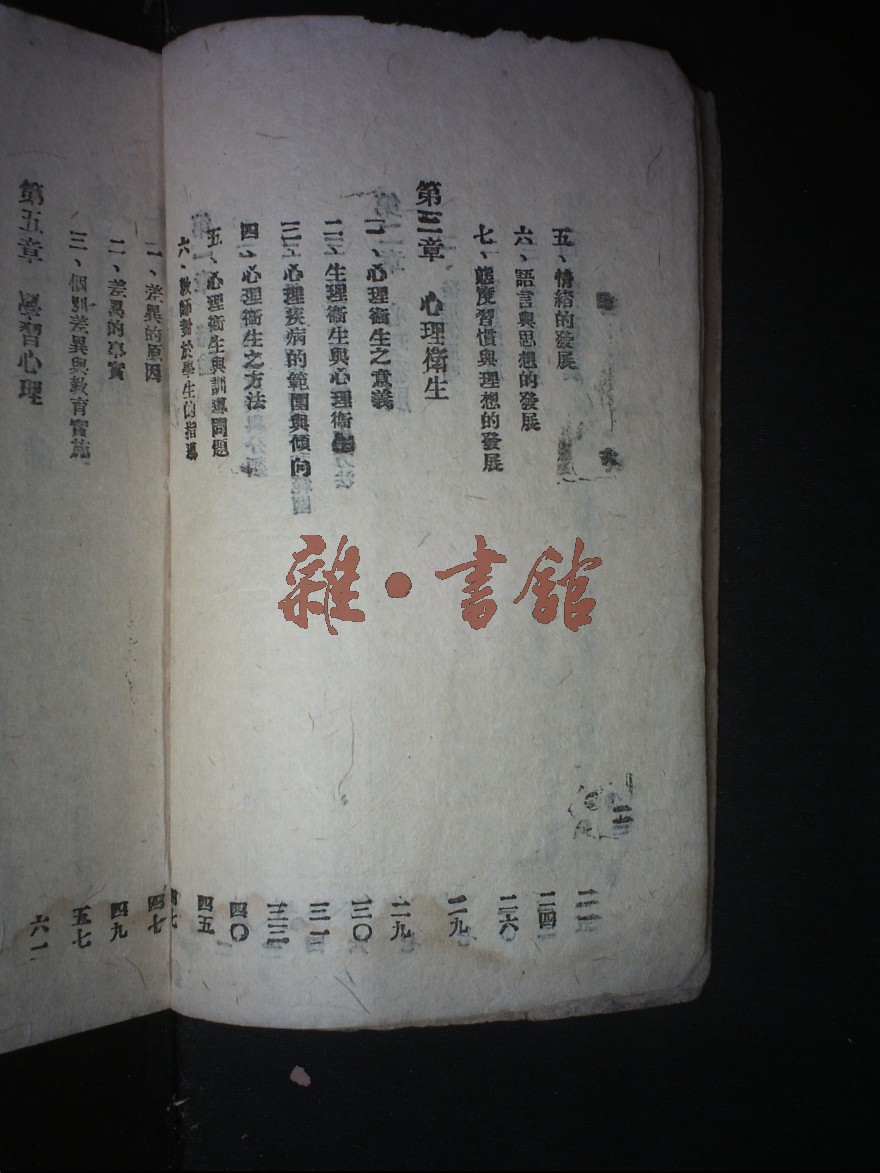 五、情緒的發展
六、語言與思想的發展 二四
七、態度習慣與理想的發展 二六
第三章 心理衛生 二九
一、心理衛生之意義 二九
二、生理衛生與心理衛生 三〇
三、心理疾病的範圍與傾向 三一
四、心理衛生之方法
五、心理衛生與訓導問題 四〇
六、教師對於學生的指導 四五
四七
一、差異的原因 四七
二、差異的事實 四九
三、個別差異與教育實施 五七
第五章 學習心理 六一
雜·書館